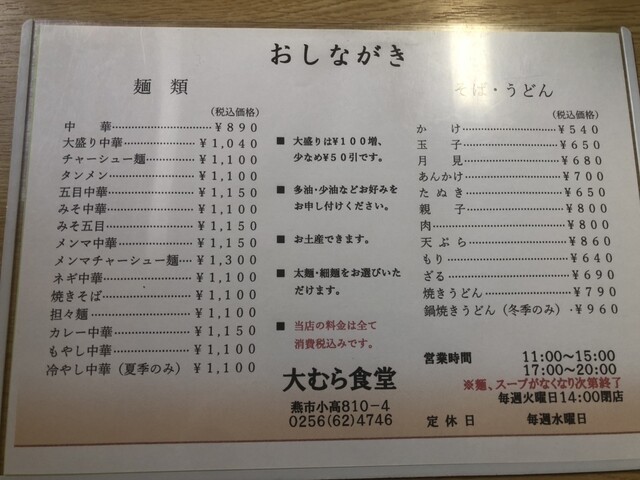 おしながき
麺類
(税込価格)
中華 ¥890
大盛り中華 ¥1,040
チャーシュー麺 ¥1,100
タンメン ¥1,100
五目中華 ¥1,150
みそ中華 ¥1,100
みそ五目 ¥1,150
メンマ中華 ¥1,150
メンマチャーシュー麺 ¥1,300
ネギ中華 ¥1,100
焼きそば ¥1,100
担々麺 ¥1,100
カレー中華 ¥1,150
もやし中華 ¥1,100
冷やし中華(夏季のみ) ¥1,100
■ 大盛りは¥100増、
少なめ¥50引です。
■ 多油・少油などお好みを
お申し付けください。
■ お土産できます。
■ 太麺・細麺をお選びいた
だけます。
■ 当店の料金は全て
消費税込みです。
大むら食堂
燕市小高810-4
0256(62)4746
そば・うどん
(税込価格)
かけ ¥540
玉子 ¥650
月見 ¥680
あんかけ ¥700
たぬき ¥650
親子 ¥800
肉 ¥800
天ぷら ¥860
もり ¥640
ざる ¥690
焼きうどん ¥790
鍋焼きうどん(冬季のみ)・¥960
営業時間 11:00～15:00
17:00～20:00
※麺、スープがなくなり次第終了
毎週火曜日14:00閉店
定休日 毎週水曜日